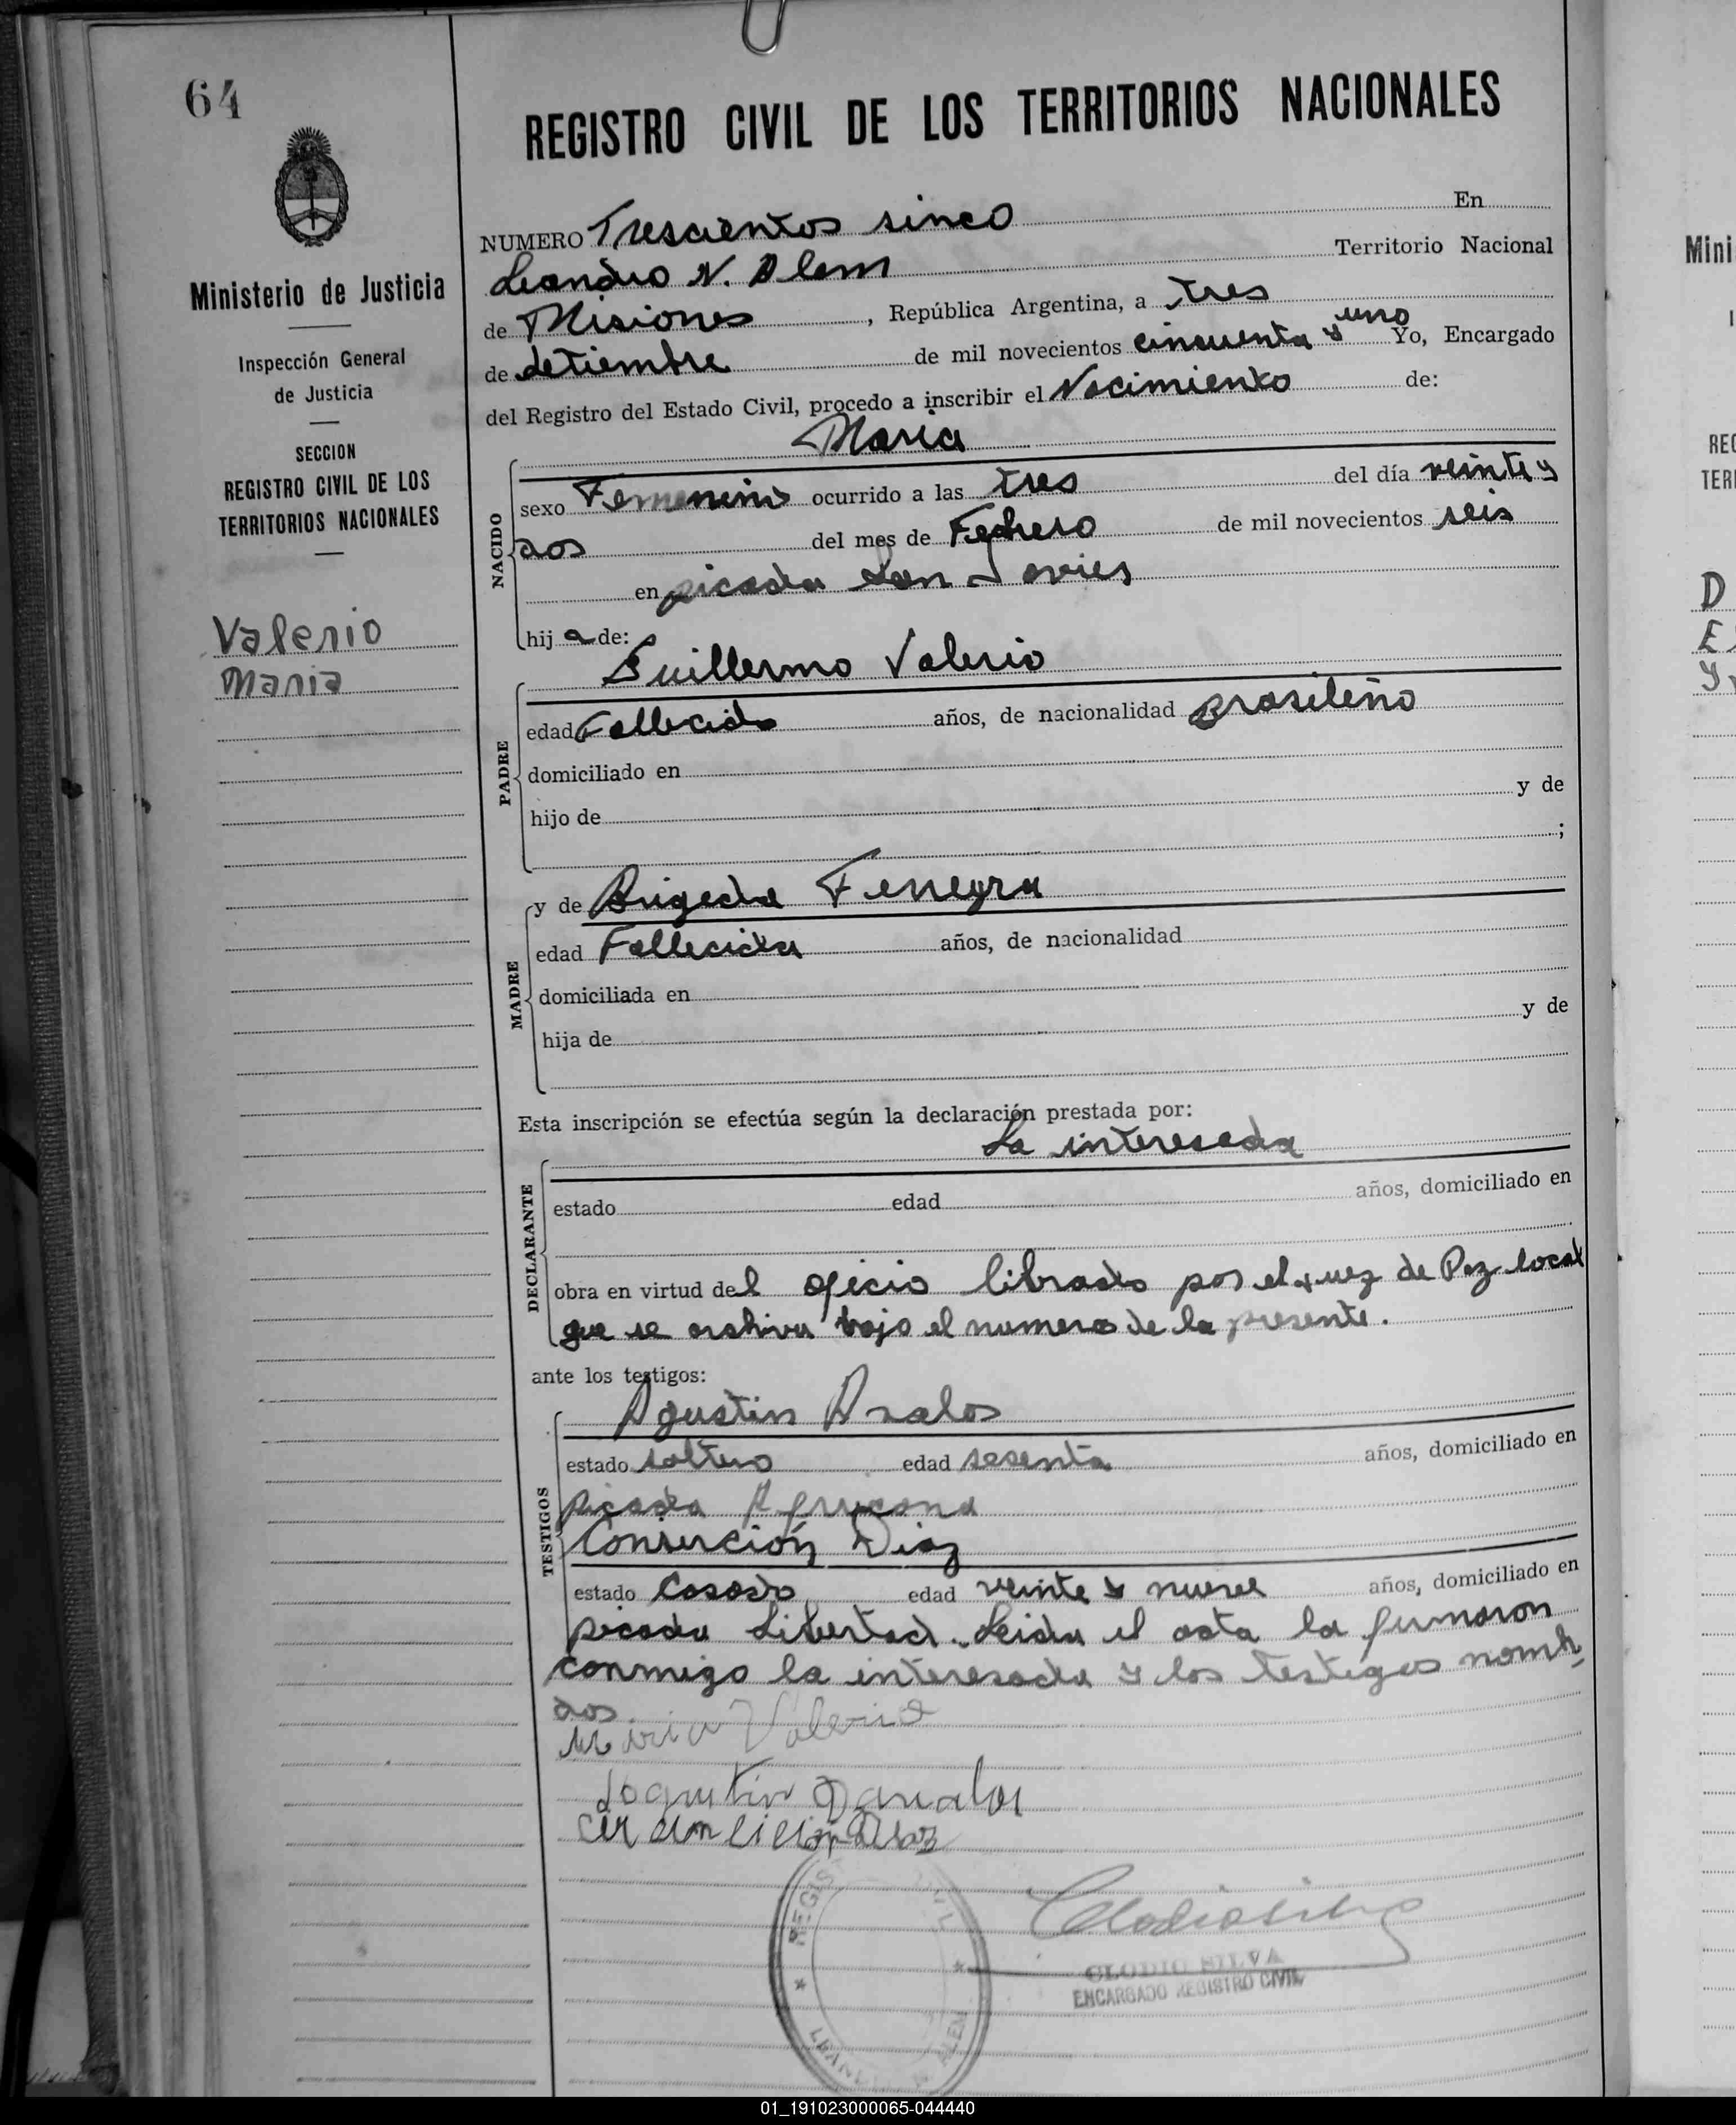 64
REGISTRO CIVIL DE LOS TERRITORIOS NACIONALES
Ministerio de Justicia
Inspección General
de Justicia
SECCION
REGISTRO CIVIL DE LOS
TERRITORIOS NACIONALES
Valerio
Maria
NUMERO Trescientos sinco En
Leandro N. Alem Territorio Nacional
de Misiones, República Argentina, a tres
de setiembre de mil novecientos cincuenta y uno Yo, Encargado
del Registro del Estado Civil, procedo a inscribir el Nacimiento de:
Maria
NACIDO
sexo Femenino ocurrido a las tres del día veinte y
dos del mes de Febrero de mil novecientos seis
en picada San Javier
hij a de:
Guillermo Valerio
PADRE
edad Fallecido años, de nacionalidad Brasileño
domiciliado en
hijo de y de
;
MADRE
y de Brigeda
edad Fallecida años, de nacionalidad
domiciliada en
hija de y de
Esta inscripción se efectúa según la declaración prestada por:
La interesada
DECLARANTE
estado edad años, domiciliado en
obra en virtud del oficio librado por el juez de Paz local
que se archiva bajo el numero de la presente.
ante los testigos:
Agustin
TESTIGOS
estado soltero edad sesenta años, domiciliado en
picada
Diaz
estado Casado edad veinte y nueve años, domiciliado en
picada Libertad. Leida el acta la firmaron
conmigo la interesada y los testigos nomb
dos.
Maria Valerio
CLODIO SILVA
ENCARGADO REGISTRO CIVIL
01_191023000065-044440